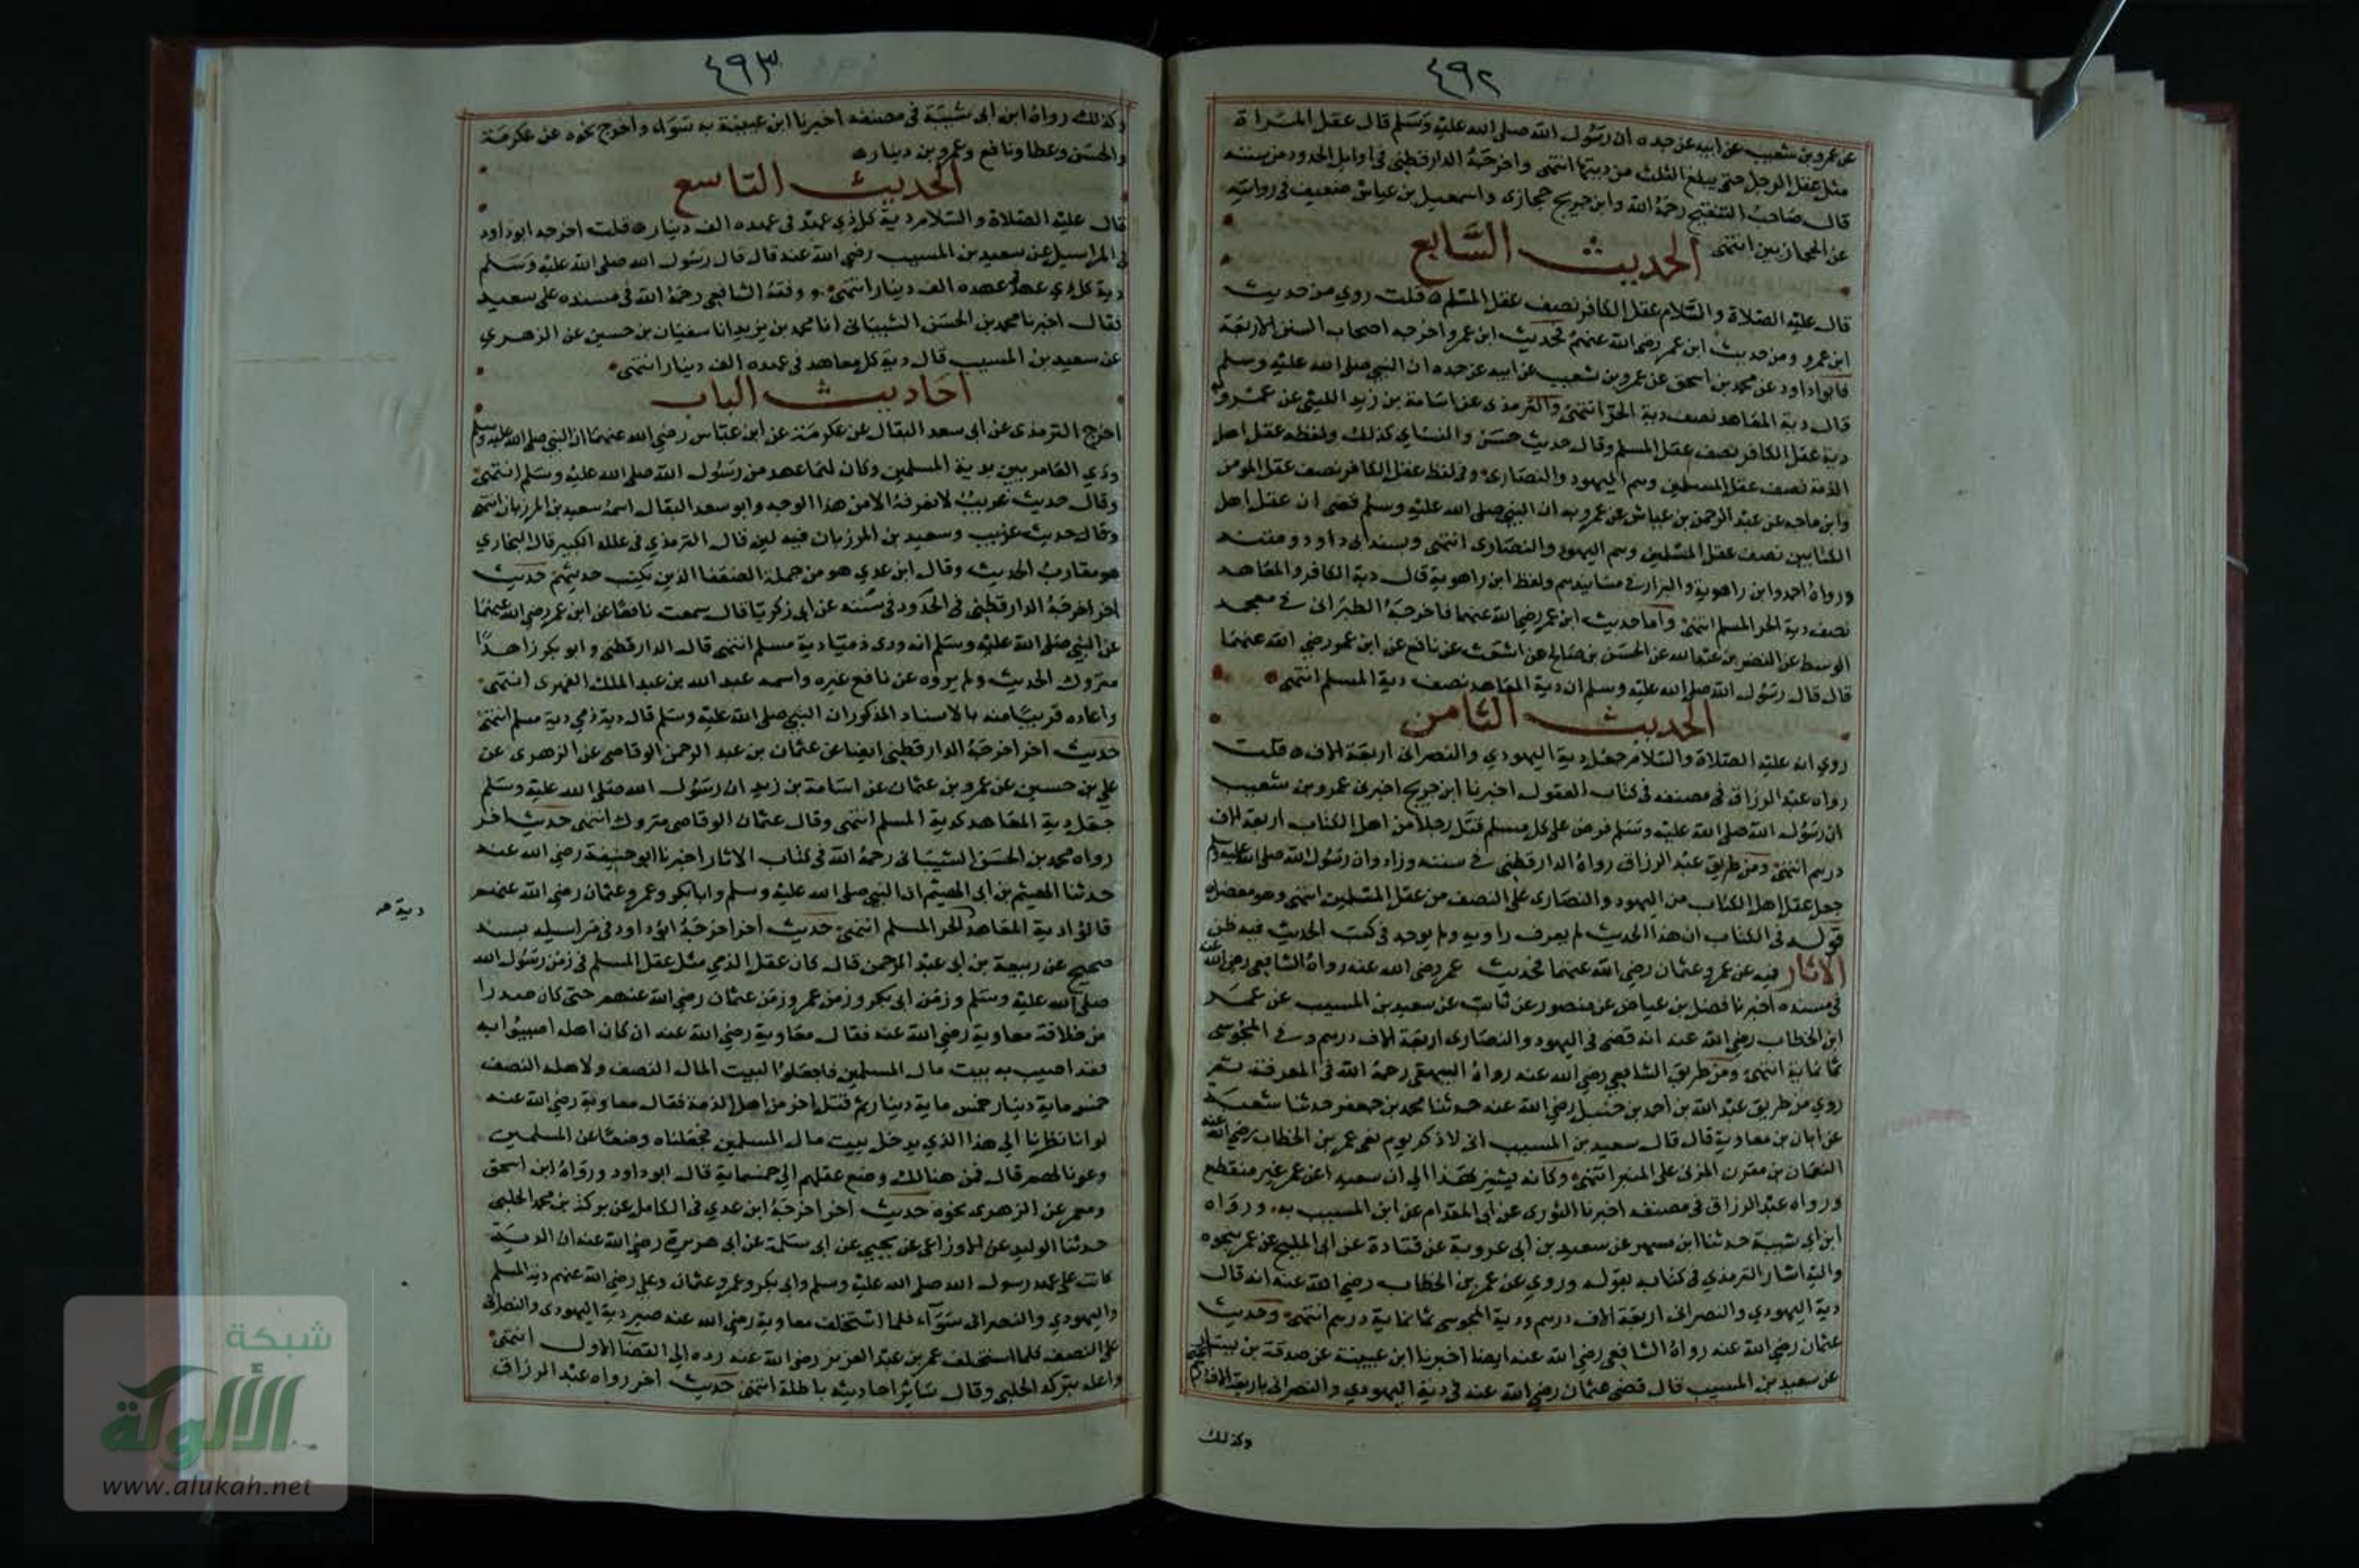 ٤٩٢
عن عمرو بن شعيب عن ابيه عن جده ان رسول الله صلى الله عليه وسلم قال عقل المراة
مثل عقل الرجل حتى يبلغ الثلث من ديتها انتهى واخرجه الدارقطني في اوايل الحدود من سننه
قال صاحب التنقيح رحمه الله وابن جريج حجازى واسمعيل بن عياش ضعيف في روايته
عن الحجازيين انتهى
الحديث السابع
قال عليه الصلاة والسلام عقل الكافر نصف عقل المسلم ه قلت روي من حديث
ابن عمرو ومن حديث ابن عمر رضي الله عنهم فحديث ابن عمرو اخرجه اصحاب السنن الاربعة
فابو داود عن محمد بن اسحق عن عمرو بن شعيب عن ابيه عن جده ان النبي صلى الله عليه وسلم
قال دية المعاهد نصف دية الحر انتهى والترمذى عن اسامة بن زيد الليثي عن عمرو به
دية عقل الكافر نصف عقل المسلم وقال حديث حسن والنساي كذلك ولفظه عقل اهل
الذمة نصف عقل المسلمين وهم اليهود والنصارى وفي لفظ عقل الكافر نصف عقل المومن
وابن ماجه عن عبد الرحمن بن عياش عن عمرو به ان النبي صلى الله عليه وسلم قضى ان عقل اهل
الكتابين نصف عقل المسلمين وهم اليهود والنصارى انتهى وبسند ابى داود ومتنه
ورواه احمد وابن راهويه والبزار في مسانيدهم ولفظ ابن راهوية قال دية الكافر والمعاهد
نصف دية الحر المسلم انتهى واما حديث ابن عمر رضي الله عنهما فاخرجه الطبراني في معجمه
الوسط عن النضر بن عبد الله عن الحسن بن صالح عن اشعث عن نافع عن ابن عمر رضي الله عنهما
قال قال رسول الله صلى الله عليه وسلم ان دية المعاهد نصف دية المسلم انتهى
الحديث الثامن
روي انه عليه الصلاة والسلام جعل دية اليهودي والنصراني اربعة الاف ه قلت
رواه عبد الرزاق في مصنفه في كتاب العقول اخبرنا ابن جريج اخبرني عمرو بن شعيب
ان رسول الله صلى الله عليه وسلم فرض على كل مسلم قتل رجلا من اهل الكتاب اربعة الاف
درهم انتهى ومن طريق عبد الرزاق رواه الدارقطني في سننه وزاد وان رسول الله صلى الله عليه وسلم
جعل عقل اهل الكتاب من اليهود والنصارى على النصف من عقل المسلمين انتهى وهو معضل
قوله في الكتاب ان هذا الحديث لم يعرف راويه ولم يوجد في كتب الحديث فيه ظن
الاثار فيه عن عمر وعثمان رضي الله عنهما فحديث عمر رضي الله عنه رواه الشافعي رضي الله عنه
في مسنده اخبرنا فضيل بن عياض عن منصور عن ثابت عن سعيد بن المسيب عن عمر
ابن الخطاب رضي الله عنه انه قضى في اليهود والنصارى اربعة الاف درهم وفي المجوسي
ثمانماية انتهى ومن طريق الشافعي رضي الله عنه رواه البيهقي رحمه الله في المعرفة ثم
روي من طريق عبد الله بن احمد بن حنبل رضي الله عنه حدثنا محمد بن جعفر حدثنا شعبة
عن اياس بن معاوية قال قال سعيد بن المسيب انى لاذكر يوم نعى عمر بن الخطاب رضي الله عنه
النعمان بن مقرن المزنى على المنبر انتهى وكانه يشير بهذا الى ان سعيدا عن عمر غير منقطع
ورواه عبد الرزاق في مصنفه اخبرنا الثورى عن ابى المقدام عن ابن المسيب به ورواه
ابن ابي شيبة حدثنا ابن مسهر عن سعيد بن ابى عروبة عن قتادة عن ابى المليح عن عمر بنحوه
واليه اشار الترمذي في كتابه بقوله وروي عن عمر بن الخطاب رضي الله عنه انه قال
دية اليهودي والنصراني اربعة الاف درهم ودية المجوسى ثمانماية درهم انتهى وحديث
عثمان رضي الله عنه رواه الشافعي رضي الله عنه ايضا اخبرنا ابن عيينة عن صدقة بن يسار
عن سعيد بن المسيب قال قضى عثمان رضي الله عنه في دية اليهودي والنصراني باربعة الاف درهم
وكذلك
٤٩٣
وكذلك رواه ابن ابى شيبة في مصنفه اخبرنا ابن عيينة به سواء واخرج نحوه عن عكرمة
والحسن وعطا ونافع وعمرو بن دينار ه
الحديث التاسع
قال عليه الصلاة والسلام دية كل ذي عهد في عهده الف دينار ه قلت اخرجه ابوداود
في المراسيل عن سعيد بن المسيب رضي الله عنه قال قال رسول الله صلى الله عليه وسلم
دية كل ذي عهد في عهده الف دينار انتهى ووقفه الشافعي رحمه الله في مسنده على سعيد
فقال اخبرنا محمد بن الحسن الشيبانى انا محمد بن يزيد انا سفيان بن حسين عن الزهري
عن سعيد بن المسيب قال دية كل معاهد في عهده الف دينار انتهى
احاديث الباب
اخرج الترمذى عن ابى سعد البقال عن عكرمة عن ابن عباس رضي الله عنهما ان النبي صلى الله عليه وسلم
ودي العامريين بدية المسلمين وكان لهما عهد من رسول الله صلى الله عليه وسلم انتهى
وقال حديث غريب لا نعرفه الا من هذا الوجه وابو سعد البقال اسمه سعيد بن المرزبان انتهى
وقال حديث غريب وسعيد بن المرزبان فيه لين قال الترمذي في علله الكبير قال البخاري
هو مقارب الحديث وقال ابن عدي هو من جملة الضعفا الذين يكتب حديثهم حديث
اخر اخرجه الدارقطني في الحدود في سننه عن ابى زكريا قال سمعت نافعا عن ابن عمر رضي الله عنهما
عن النبي صلى الله عليه وسلم انه ودى ذميا دية مسلم انتهى قال الدارقطني وابو بكر زاهدا
متروك الحديث ولم يروه عن نافع غيره واسمه عبد الله بن عبد الملك الفهرى انتهى
واعاده قريبا منه بالاسناد المذكور ان النبي صلى الله عليه وسلم قال دية ذمي دية مسلم انتهى
حديث اخر اخرجه الدارقطني ايضا عن عثمان بن عبد الرحمن الوقاصى عن الزهرى عن
علي بن حسين عن عمرو بن عثمان عن اسامة بن زيد ان رسول الله صلى الله عليه وسلم
جعل دية المعاهد كدية المسلم انتهى وقال عثمان الوقاصى متروك انتهى حديث اخر
رواه محمد بن الحسن الشيبانى رحمه الله في كتاب الاثار اخبرنا ابو حنيفة رضي الله عنه
حدثنا الهيثم بن ابى الهيثم ان النبي صلى الله عليه وسلم وابا بكر وعمر وعثمان رضي الله عنهم
قالوا دية المعاهد الحر المسلم انتهى حديث اخر اخرجه ابو داود في مراسيله بسند
دية ص
صحيح عن ربيعة بن ابى عبد الرحمن قال كان عقل الذمي مثل عقل المسلم في زمن رسول الله
صلى الله عليه وسلم وزمن ابى بكر وزمن عمر وزمن عثمان رضي الله عنهم حتى كان صدرا
من خلافة معاوية رضي الله عنه فقال معاوية رضي الله عنه ان كان اهله اصيبوا به
فقد اصيب به بيت مال المسلمين فاجعلوا لبيت المال النصف ولاهله النصف
خمس ماية دينار خمس ماية دينار ثم قتل اخر من اهل الذمة فقال معاوية رضي الله عنه
لو انا نظرنا الى هذا الذي يدخل بيت مال المسلمين فجعلناه وضعا عن المسلمين
وعونا لهم قال فمن هنالك وضع عقلهم الى خمسماية قال ابو داود ورواه ابن اسحق
ومعمر عن الزهرى نحوه حديث اخر اخرجه ابن عدي في الكامل عن بركة بن محمد الحلبي
حدثنا الوليد عن الاوزاعى عن يحيي عن ابى سلمة عن ابى هريرة رضي الله عنه ان الدية
كانت على عهد رسول الله صلى الله عليه وسلم وابى بكر وعمر وعثمان وعلي رضي الله عنهم دية المسلم
واليهودي والنصرانى سوآء فلما استخلف معاوية رضي الله عنه صير دية اليهودى والنصرانى
على النصف فلما استخلف عمر بن عبد العزيز رضي الله عنه رده الى القضا الاول انتهى
واعله ببركة الحلبي وقال سائر احاديثه باطلة انتهى حديث اخر رواه عبد الرزاق
شبكة
الألوكة
www.alukah.net